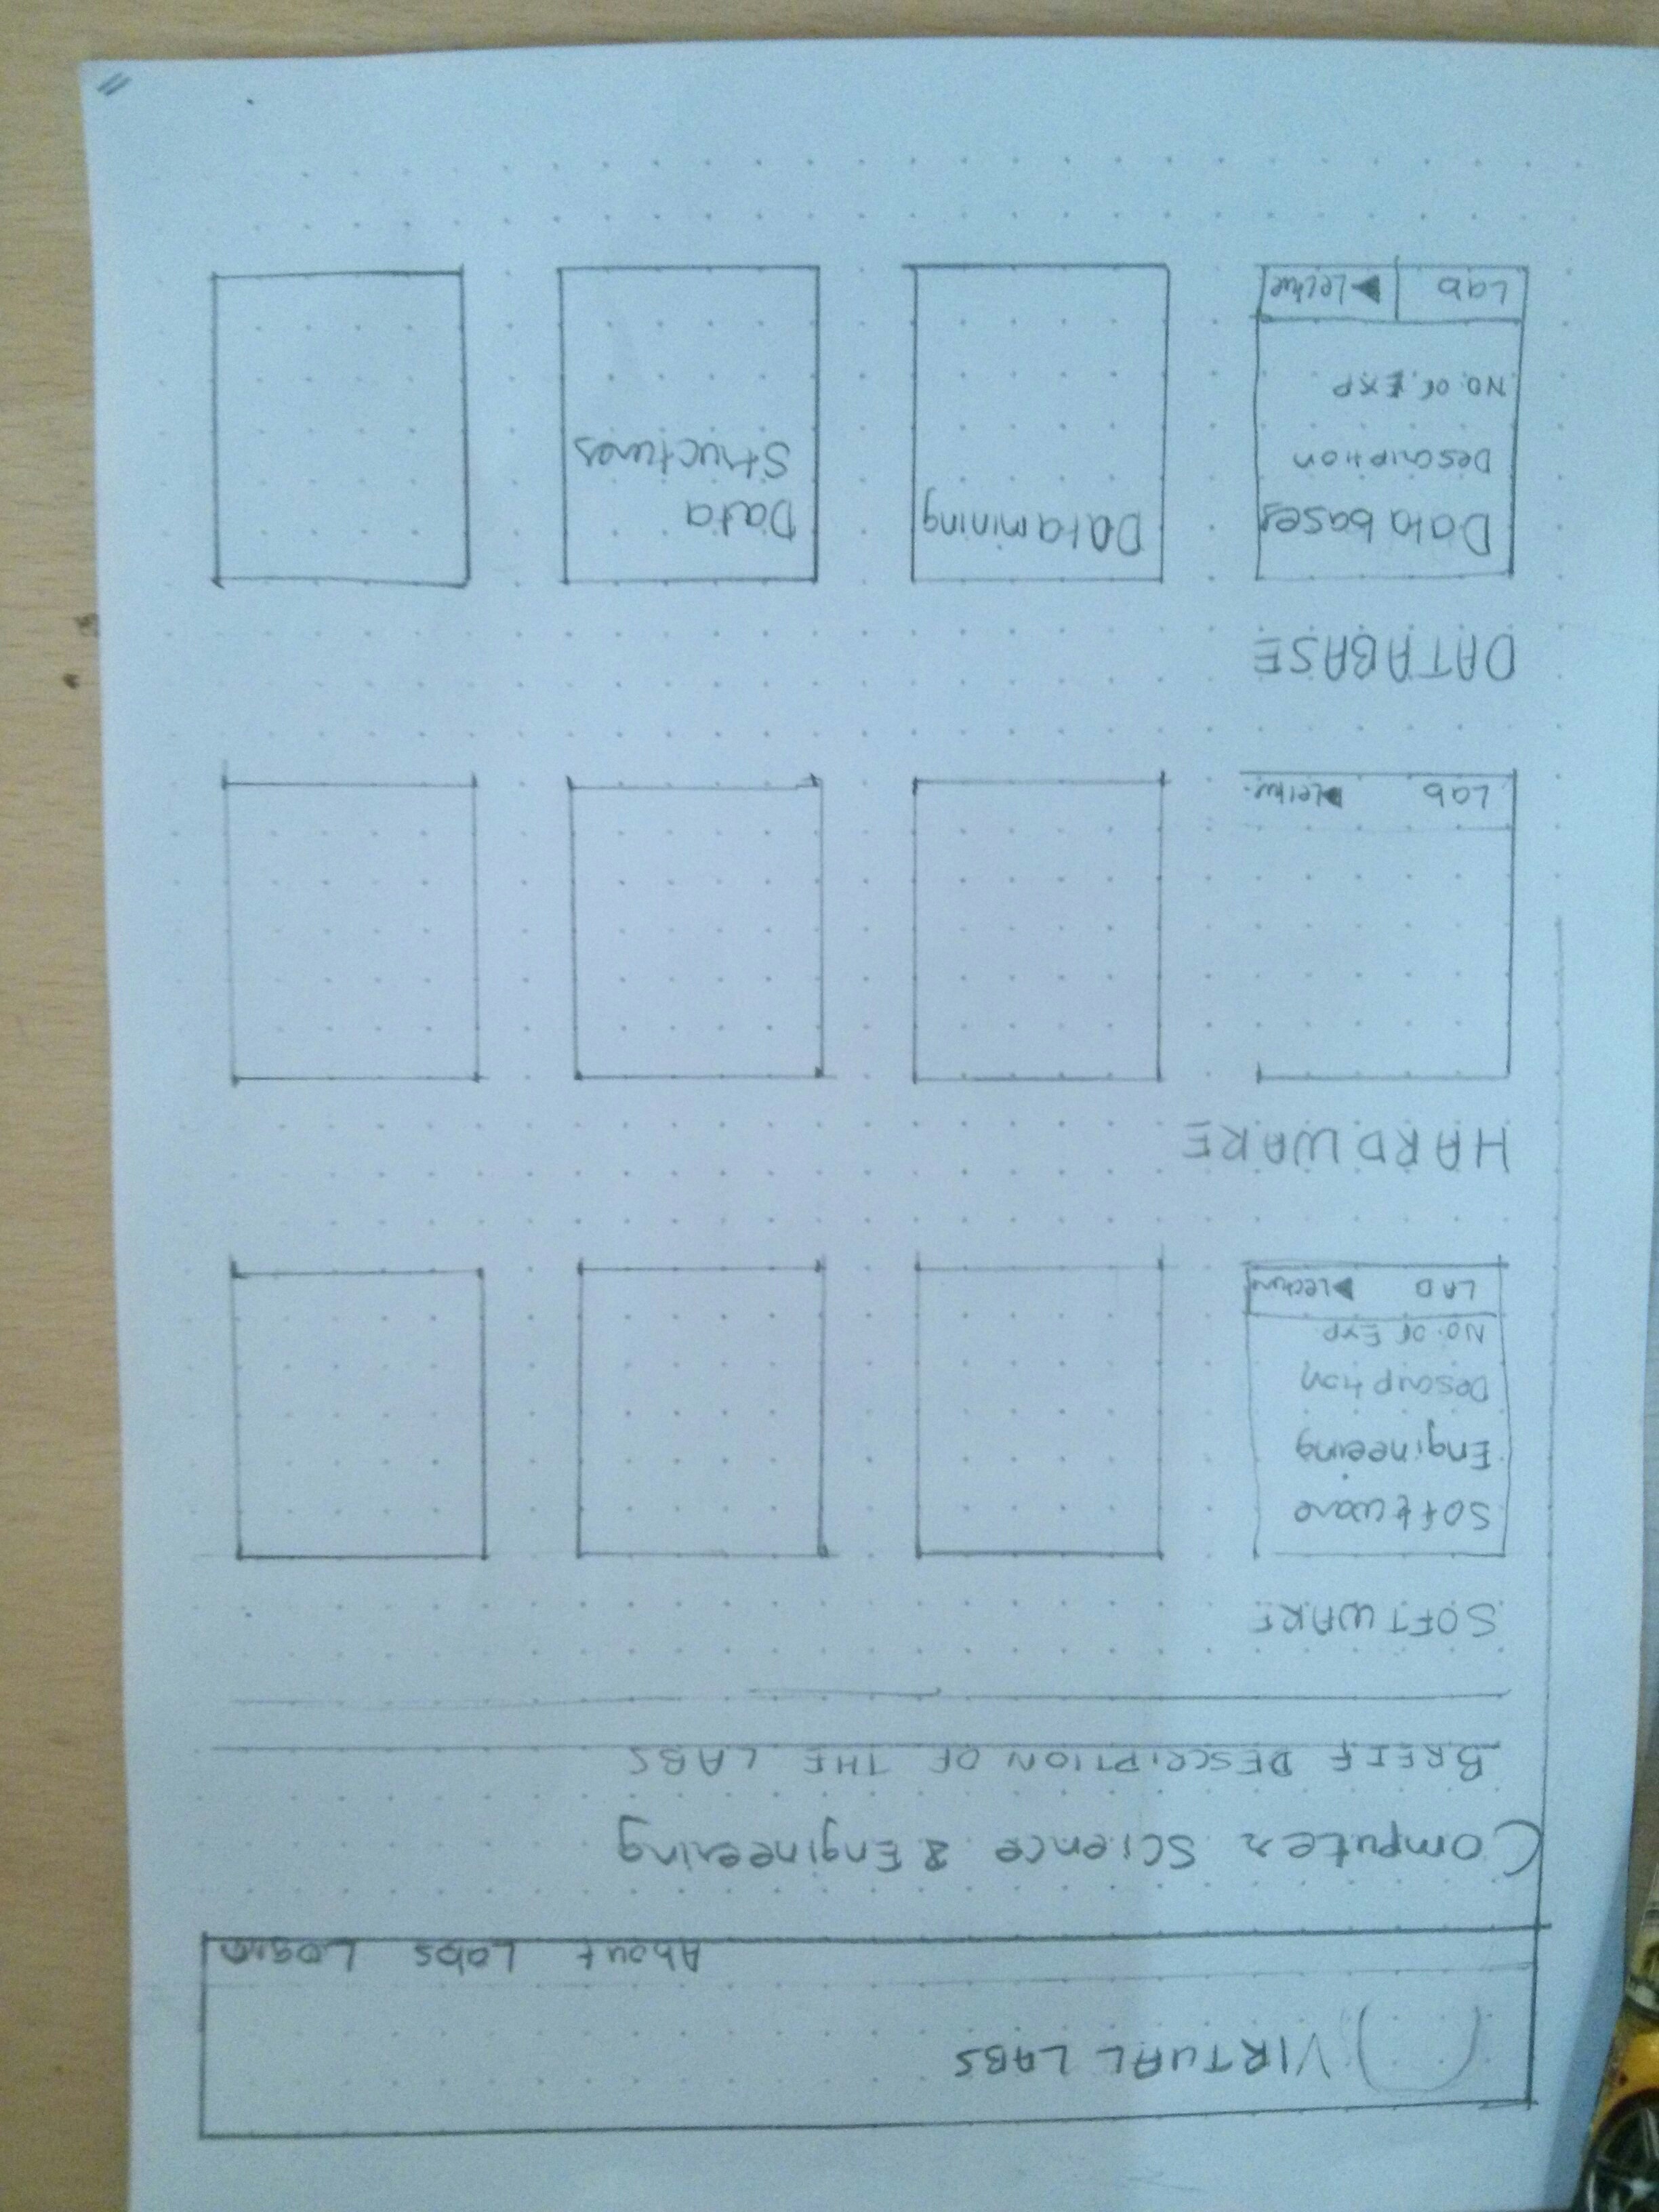 VIRTUAL LABS
About Labs Login
Computer Science & Engineering
BREIF DESCRIPTION OF THE LABS
SOFTWARE
Software
Engineeing
Description
No. of Exp
LAB ▶Lecture
HARDWARE
Lab ▶Lectur.
DATABASE
Databases
Description
No. of Exp
Lab ▶Lecture
Datamining
Data
Structures